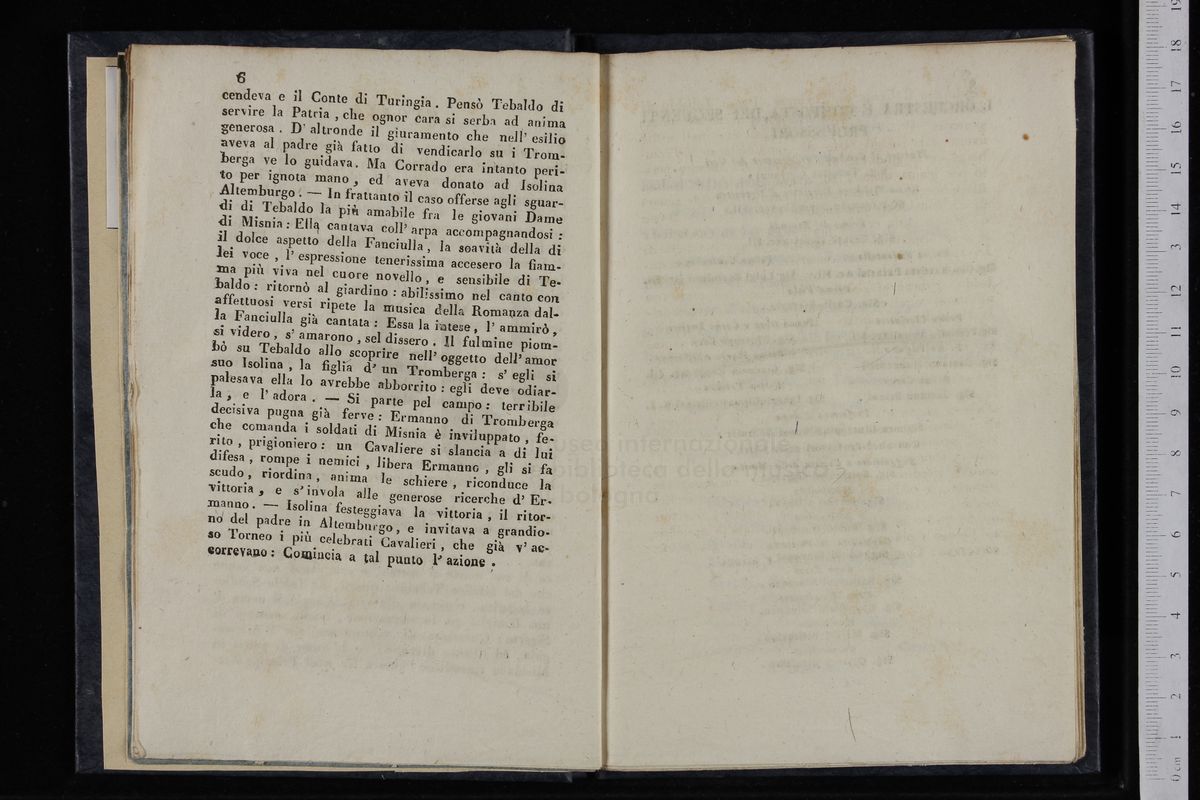 6
cendeva e il Conte di Turingia. Pensò Tebaldo di
servire la Patria, che ognor cara si serba ad anima
generosa. D' altronde il giuramento che nell' esilio
aveva al padre già fatto di vendicarlo su i Trom-
berga ve lo guidava. Ma Corrado era intanto peri-
to per ignota mano, ed aveva donato ad Isolina
Altemburgo. — In frattanto il caso offerse agli sguar-
di di Tebaldo la più amabile fra le giovani Dame
di Misnia: Ella cantava coll' arpa accompagnandosi:
il dolce aspetto della Fanciulla, la soavità della di
lei voce, l' espressione tenerissima accesero la fiam-
ma più viva nel cuore novello, e sensibile di Te-
baldo: ritornò al giardino: abilissimo nel canto con
affettuosi versi ripete la musica della Romanza dal-
la Fanciulla già cantata: Essa la intese, l' ammirò,
si videro, s' amarono, sel dissero. Il fulmine piom-
bò su Tebaldo allo scoprire nell' oggetto dell' amor
suo Isolina, la figlia d' un Tromberga: s' egli si
palesava ella lo avrebbe abborrito: egli deve odiar-
la, e l' adora. — Si parte pel campo: terribile
decisiva pugna già ferve: Ermanno di Tromberga
che comanda i soldati di Misnia è inviluppato, fe-
rito, prigioniero: un Cavaliere si slancia a di lui
difesa, rompe i nemici, libera Ermanno, gli si fa
scudo, riordina, anima le schiere, riconduce la
vittoria, e s' invola alle generose ricerche d' Er-
manno. — Isolina festeggiava la vittoria, il ritor-
no del padre in Altemburgo, e invitava a grandio-
so Torneo i più celebrati Cavalieri, che già v' ac-
correvano: Comincia a tal punto l' azione.
museo internazionale
biblioteca della musica
bologna